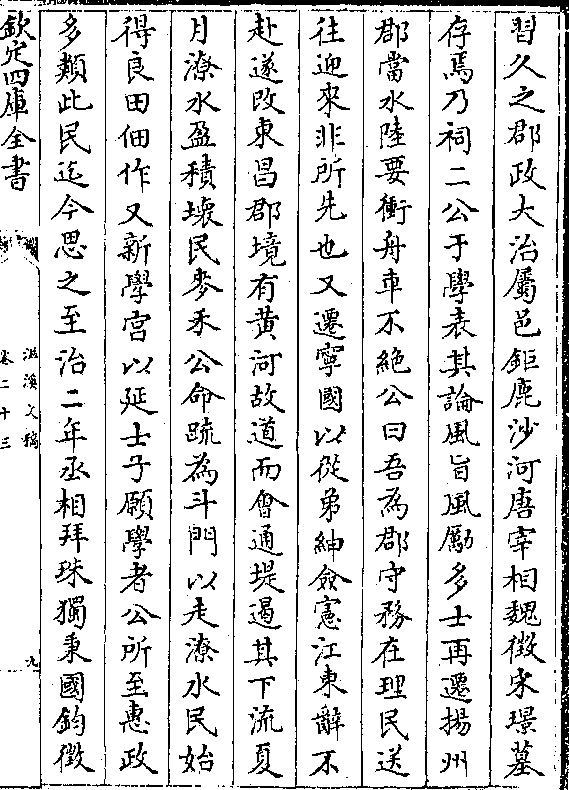 習久之郡政大治屬邑鉅鹿沙河唐宰相魏徴宋璟墓
存焉乃祠二公于學表其論風旨風勵多士再遷揚州
郡當水陸要衝舟車不絶公曰吾為郡守務在理民送
往迎來非所先也又遷寧國以從弟紳僉憲江東辭不
赴遂改東昌郡境有黄河故道而㑹通堤遏其下流夏
月潦水盈積壞民麥禾公命疏為斗門以走潦水民始
得良田佃作又新學宫以延士子願學者公所至惠政
多類此民迄今思之至治二年丞相拜珠獨秉國鈞徴
欽定四庫全書
滋溪文稿
卷二十三
九